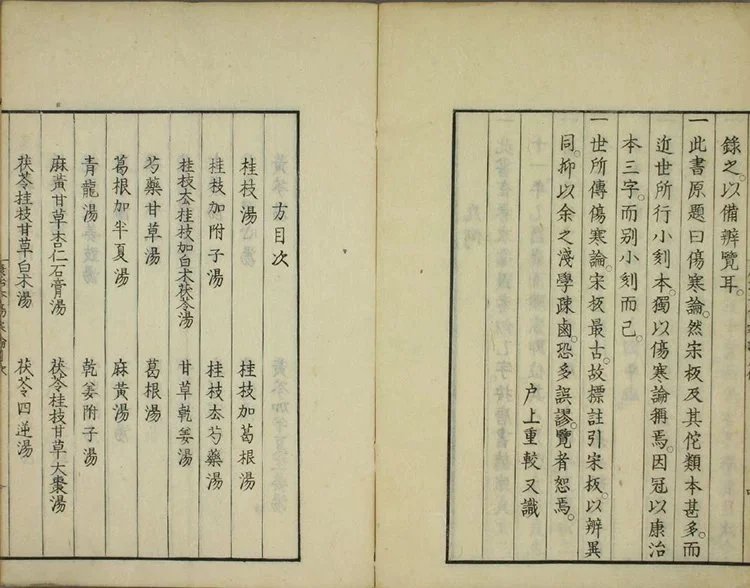 錄之。以備辨覽耳。
一此書原題曰傷寒論。然宋板及其佗類本甚多。而
近世所行小刻本。獨以傷寒論稱焉。因冠以康治
本三字。而别小刻而已。
一世所傳傷寒論。宋板最古。故標註引宋板。以辨異
同。抑以余之淺學疎鹵。恐多誤謬。覽者恕焉。
戶上重較又識
方目次
桂枝湯 桂枝加葛根湯
桂枝加附子湯 桂枝去芍藥湯
桂枝去桂枝加白朮茯苓湯 甘草乾姜湯
芍藥甘草湯 葛根湯
葛根加半夏湯 麻黃湯
青龍湯 乾姜附子湯
麻黃甘草杏仁石膏湯 茯苓桂枝甘草大棗湯
茯苓桂枝甘草白朮湯 茯苓四逆湯